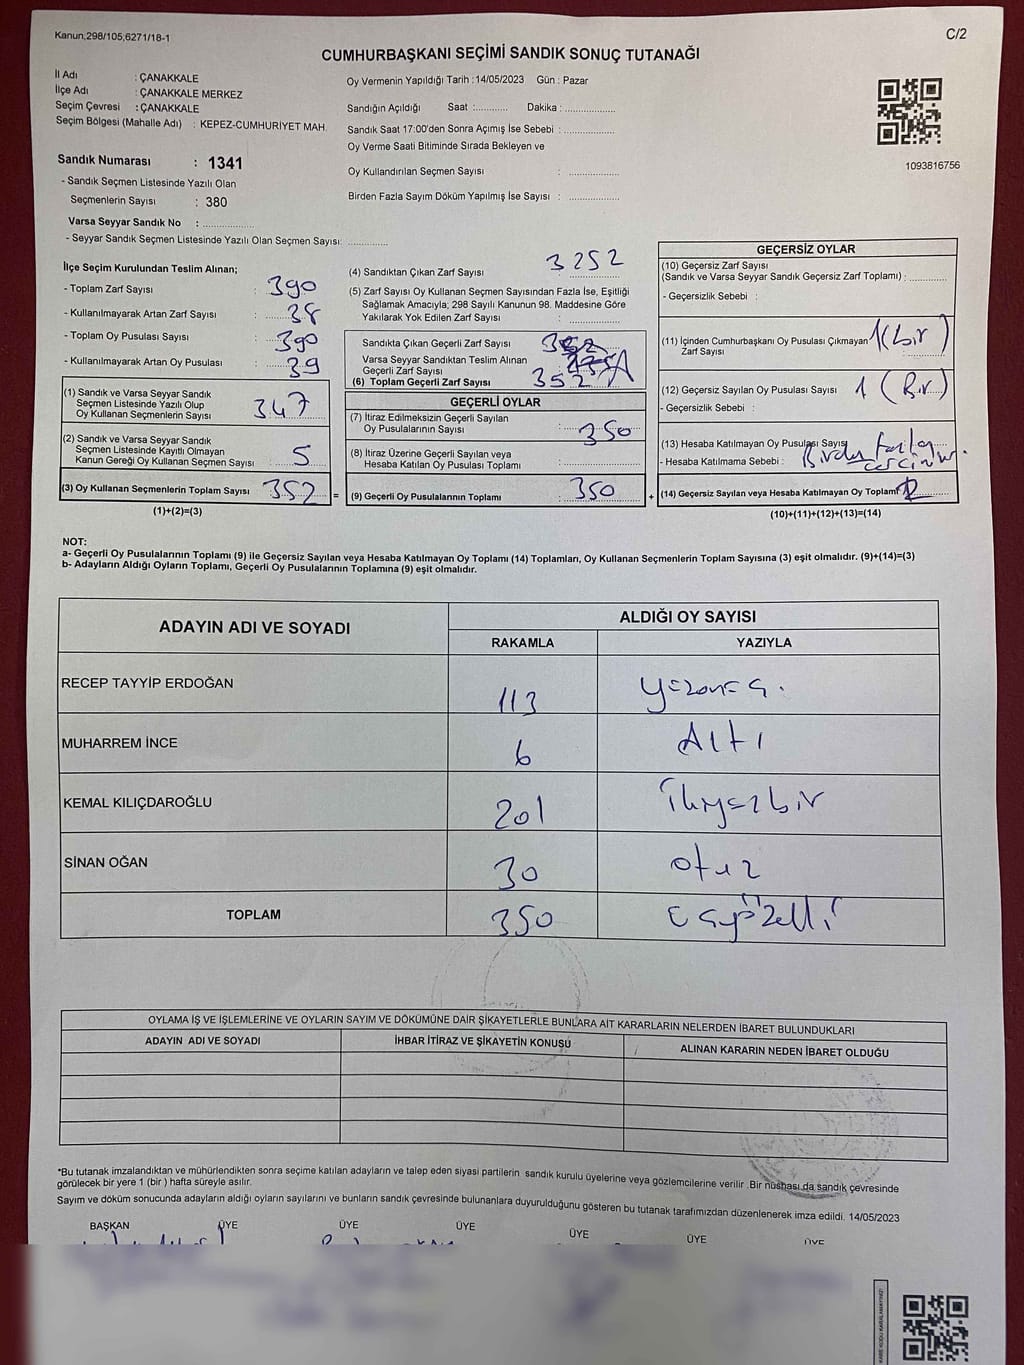 Kanun,298/105,6271/18-1
C/2
CUMHURBAŞKANI SEÇİMİ SANDIK SONUÇ TUTANAĞI
İl Adı : ÇANAKKALE
İlçe Adı : ÇANAKKALE MERKEZ
Seçim Çevresi : ÇANAKKALE
Seçim Bölgesi (Mahalle Adı) : KEPEZ-CUMHURİYET MAH.
Oy Vermenin Yapıldığı Tarih : 14/05/2023 Gün : Pazar
Sandığın Açıldığı Saat :........... Dakika : ...................
Sandık Saat 17:00'den Sonra Açımış İse Sebebi : ...................
Oy Verme Saati Bitiminde Sırada Bekleyen ve
Oy Kullandırılan Seçmen Sayısı : ...................
Birden Fazla Sayım Döküm Yapılmış İse Sayısı : ...................
1093816756
Sandık Numarası : 1341
- Sandık Seçmen Listesinde Yazılı Olan
Seçmenlerin Sayısı : 380
Varsa Seyyar Sandık No : ...................
- Seyyar Sandık Seçmen Listesinde Yazılı Olan Seçmen Sayısı: ...............
İlçe Seçim Kurulundan Teslim Alınan;
- Toplam Zarf Sayısı : 390
- Kullanılmayarak Artan Zarf Sayısı : 38
- Toplam Oy Pusulası Sayısı : 390
- Kullanılmayarak Artan Oy Pusulası : 39
(1) Sandık ve Varsa Seyyar Sandık
Seçmen Listesinde Yazılı Olup
Oy Kullanan Seçmenlerin Sayısı : 347
(2) Sandık ve Varsa Seyyar Sandık
Seçmen Listesinde Kayıtlı Olmayan
Kanun Gereği Oy Kullanan Seçmen Sayısı : 5
(3) Oy Kullanan Seçmenlerin Toplam Sayısı : 352 =
(1)+(2)=(3)
(4) Sandıktan Çıkan Zarf Sayısı : 3252
(5) Zarf Sayısı Oy Kullanan Seçmen Sayısından Fazla İse, Eşitliği
Sağlamak Amacıyla; 298 Sayılı Kanunun 98. Maddesine Göre
Yakılarak Yok Edilen Zarf Sayısı : ...................
Sandıkta Çıkan Geçerli Zarf Sayısı :
Varsa Seyyar Sandıktan Teslim Alınan
Geçerli Zarf Sayısı :
(6) Toplam Geçerli Zarf Sayısı : 352
GEÇERLİ OYLAR
(7) İtiraz Edilmeksizin Geçerli Sayılan
Oy Pusulalarının Sayısı : 350
(8) İtiraz Üzerine Geçerli Sayılan veya
Hesaba Katılan Oy Pusulası Toplamı : ...................
(9) Geçerli Oy Pusulalarının Toplamı : 350 +
GEÇERSİZ OYLAR
(10) Geçersiz Zarf Sayısı
(Sandık ve Varsa Seyyar Sandık Geçersiz Zarf Toplamı) : ...........
- Geçersizlik Sebebi :
(11) İçinden Cumhurbaşkanı Oy Pusulası Çıkmayan 1 (bir)
Zarf Sayısı
(12) Geçersiz Sayılan Oy Pusulası Sayısı 1 (Bir)
- Geçersizlik Sebebi :
(13) Hesaba Katılmayan Oy Pusulası Sayısı
- Hesaba Katılmama Sebebi : Birden fazla
(14) Geçersiz Sayılan veya Hesaba Katılmayan Oy Toplamı
(10)+(11)+(12)+(13)=(14)
NOT:
a- Geçerli Oy Pusulalarının Toplamı (9) ile Geçersiz Sayılan veya Hesaba Katılmayan Oy Toplamı (14) Toplamları, Oy Kullanan Seçmenlerin Toplam Sayısına (3) eşit olmalıdır. (9)+(14)=(3)
b- Adayların Aldığı Oyların Toplamı, Geçerli Oy Pusulalarının Toplamına (9) eşit olmalıdır.
ADAYIN ADI VE SOYADI ALDIĞI OY SAYISI
RAKAMLA YAZIYLA
RECEP TAYYİP ERDOĞAN 113
MUHARREM İNCE 6 Altı
KEMAL KILIÇDAROĞLU 201 İkiyüzbir
SİNAN OĞAN 30 otuz
TOPLAM 350 üçyüzelli
OYLAMA İŞ VE İŞLEMLERİNE VE OYLARIN SAYIM VE DÖKÜMÜNE DAİR ŞİKAYETLERLE BUNLARA AİT KARARLARIN NELERDEN İBARET BULUNDUKLARI
ADAYIN ADI VE SOYADI İHBAR İTİRAZ VE ŞİKAYETİN KONUSU ALINAN KARARIN NEDEN İBARET OLDUĞU
*Bu tutanak imzalandıktan ve mühürlendikten sonra seçime katılan adayların ve talep eden siyasi partilerin sandık kurulu üyelerine veya gözlemcilerine verilir .Bir nüshası da sandık çevresinde
görülecek bir yere 1 (bir ) hafta süreyle asılır.
Sayım ve döküm sonucunda adayların aldığı oyların sayılarını ve bunların sandık çevresinde bulunanlara duyurulduğunu gösteren bu tutanak tarafımızdan düzenlenerek imza edildi. 14/05/2023
BAŞKAN ÜYE ÜYE ÜYE ÜYE ÜYE ÜYE